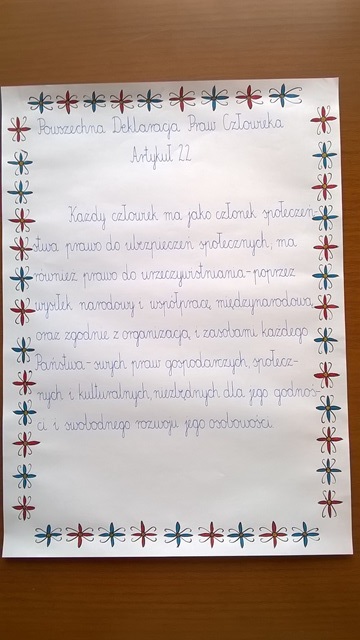 Powszechna Deklaracja Praw Człowieka
Artykuł 22
Każdy człowiek ma jako członek społeczeń-
stwa prawo do ubezpieczeń społecznych, ma
również prawo do urzeczywistniania - poprzez
wysiłek narodowy i współpracę międzynarodową,
oraz zgodnie z organizacją i zasobami każdego
Państwa - swych praw gospodarczych, społecz-
nych i kulturalnych, niezbędnych dla jego godnoś-
ci i swobodnego rozwoju jego osobowości.